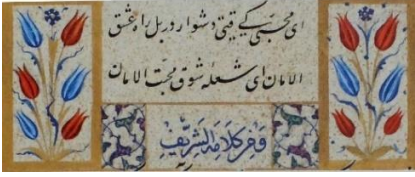 ای محبی کے قیتی دشوار در بل راه عشق
الامان ای شعلهٔ شوق محبت الامان
فخر كلامه الشريف